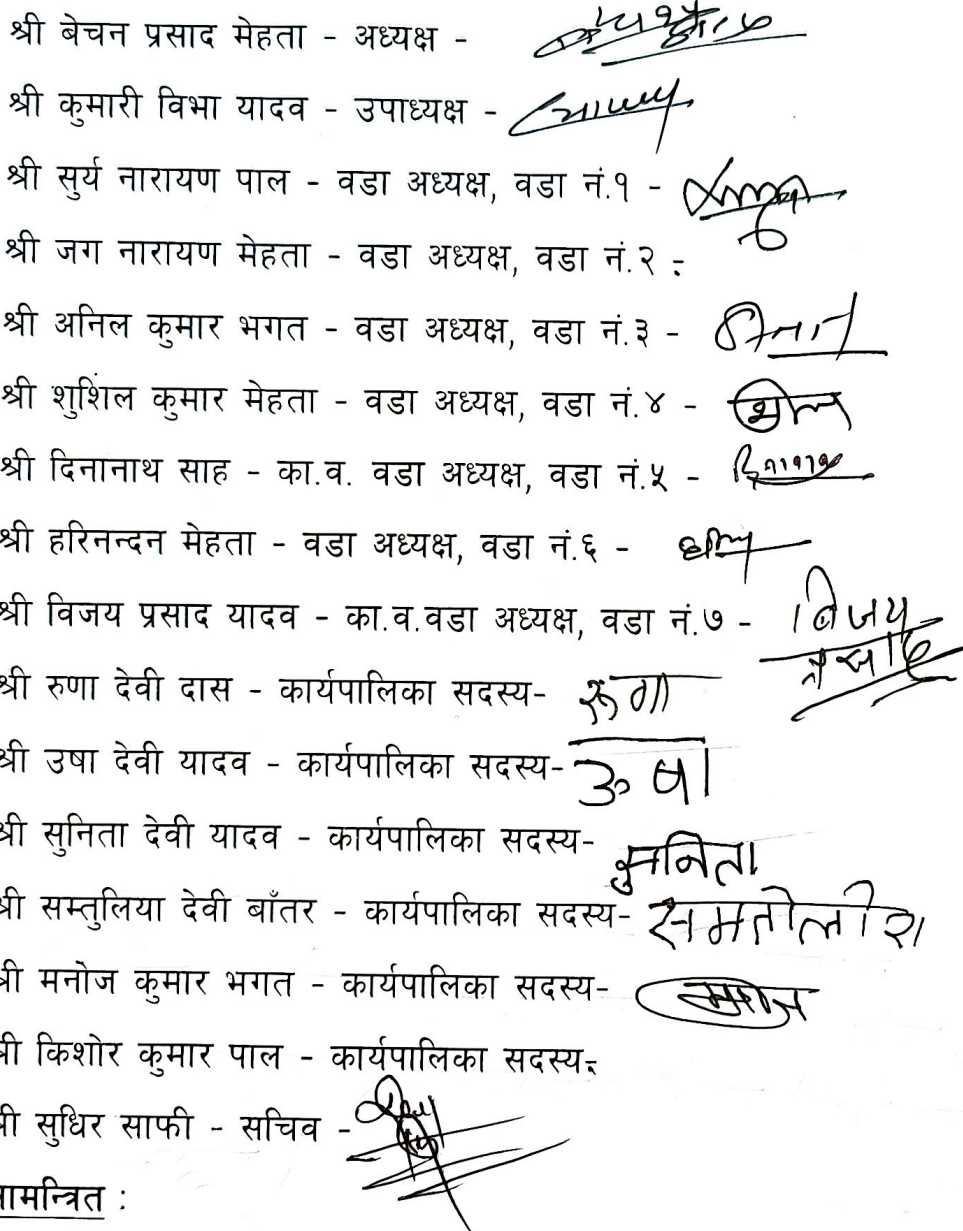 श्री बेचन प्रसाद मेहता - अध्यक्ष -
श्री कुमारी विभा यादव - उपाध्यक्ष -
श्री सुर्य नारायण पाल - वडा अध्यक्ष, वडा नं.१ -
श्री जग नारायण मेहता - वडा अध्यक्ष, वडा नं.२ -
श्री अनिल कुमार भगत - वडा अध्यक्ष, वडा नं.३ -
श्री शुशिंल कुमार मेहता - वडा अध्यक्ष, वडा नं.४ -
श्री दिनानाथ साह - का.व. वडा अध्यक्ष, वडा नं.५ -
श्री हरिनन्दन मेहता - वडा अध्यक्ष, वडा नं.६ -
श्री विजय प्रसाद यादव - का.व.वडा अध्यक्ष, वडा नं.७ - बिजय
श्री रुणा देवी दास - कार्यपालिका सदस्य-
श्री उषा देवी यादव - कार्यपालिका सदस्य- ऊषा
श्री सुनिता देवी यादव - कार्यपालिका सदस्य- सुनिता
श्री सम्तुलिया देवी बाँतर - कार्यपालिका सदस्य-
श्री मनोज कुमार भगत - कार्यपालिका सदस्य-
श्री किशोर कुमार पाल - कार्यपालिका सदस्य-
श्री सुधिर साफी - सचिव -
ामन्त्रित :